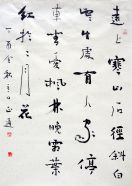 遠上寒山石径斜白
雲生處有人家停
車坐愛楓林晚霜葉
紅於二月花